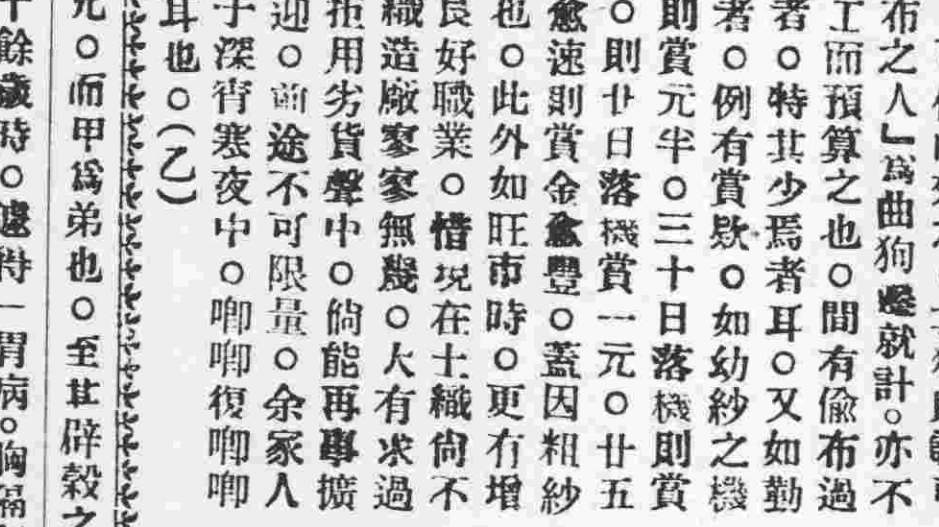 布之人」爲曲狗 就計。亦不
工而預算之也。間有偸布過
者。特其少焉者耳。又如勤
者。例有賞欵。如幼紗之機
則賞元半。三十日落機則賞
。則廿日落機賞一元。廿五
愈速則賞金愈豐。蓋因粗紗
也。此外如旺市時。更有增
良好職業。惜現在土織尙不
織造廠寥寥無幾。大有求過
拒用劣貨聲中。倘能再事擴
迎。前途不可限量。余家人
子深宵寒夜中。唧唧復唧唧
耳也。(乙)
兄。而甲爲弟也。至其辟穀之
十餘歲時。 得一胃病。胸膈